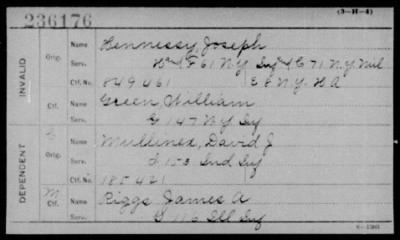 236176
(3-H-4)
INVALID
Orig.
Name Hennessy, Joseph
Serv. F 61 N.Y. Inf / C 71 N.Y. Mil
Ctf. No. 849,461 E & N.Y. H A
Ctf. Name Green, William
Serv. G 147 N.Y. Inf
DEPENDENT
Orig.
Name Mullinex, David J.
Serv. I 153 Ind Inf
Ctf. No. 185421
M
Ctf. Name Riggs James A
Serv. G 116 Ill Inf